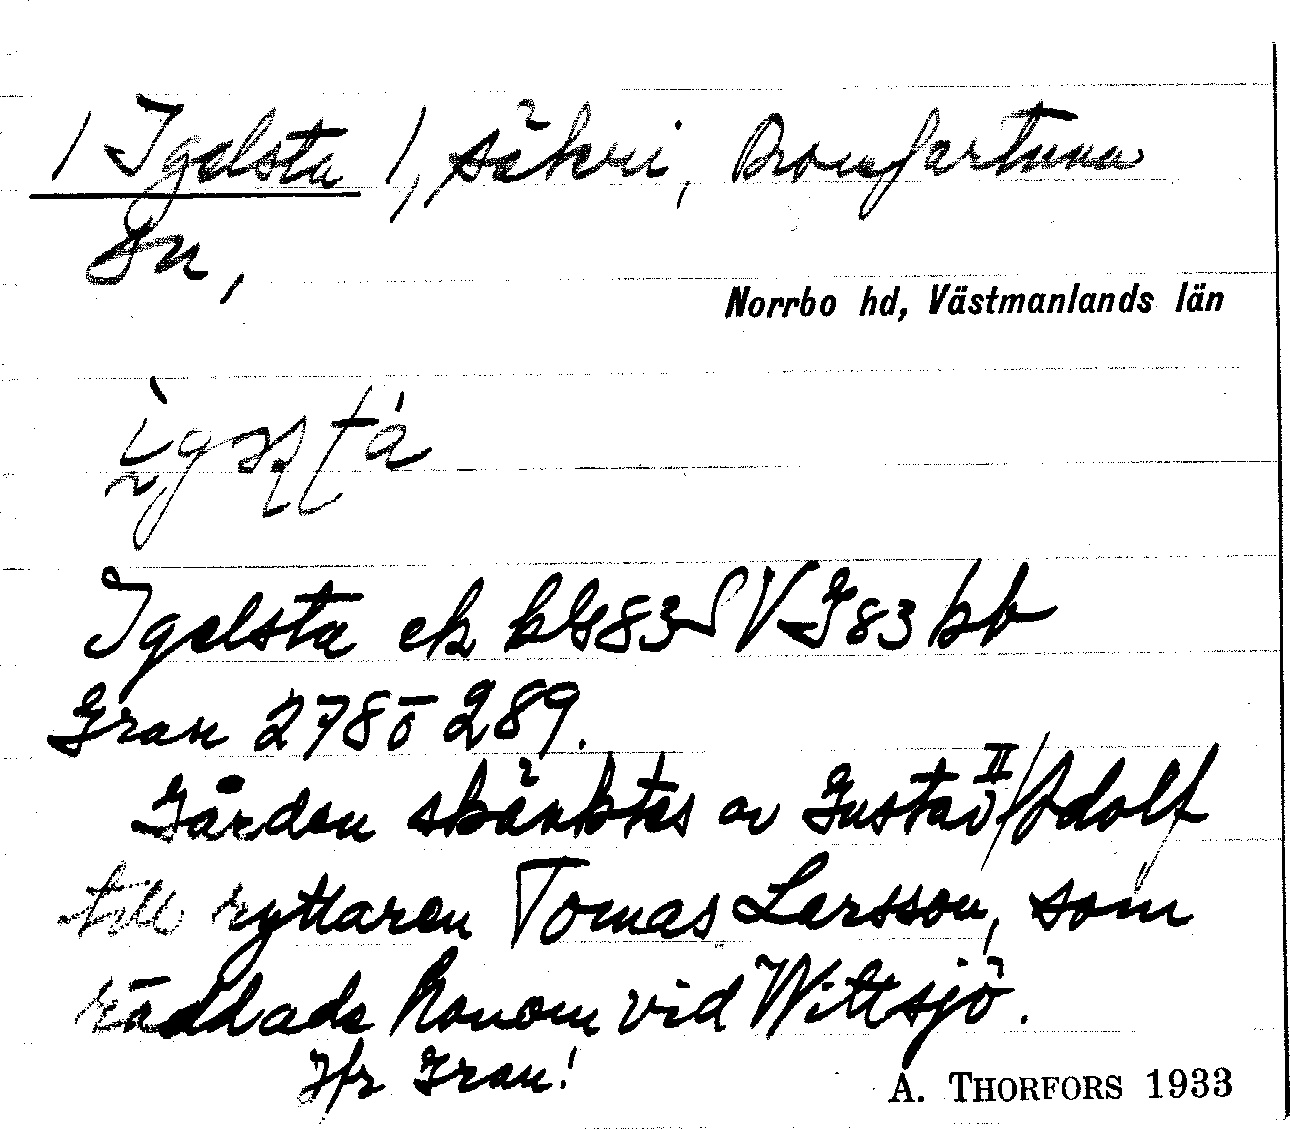 / Igelsta /, säteri, Romfartuna
sn,
Norrbo hd, Västmanlands län
Igelsta ek kbl 83 SV GS 83 bb
Gran 278 o 289.
Gården skänktes av Gustav II Adolf
till ryttaren Tomas Larsson, som
räddade honom vid Wittsjö.
Jfr Gran!
A. THORFORS 1933